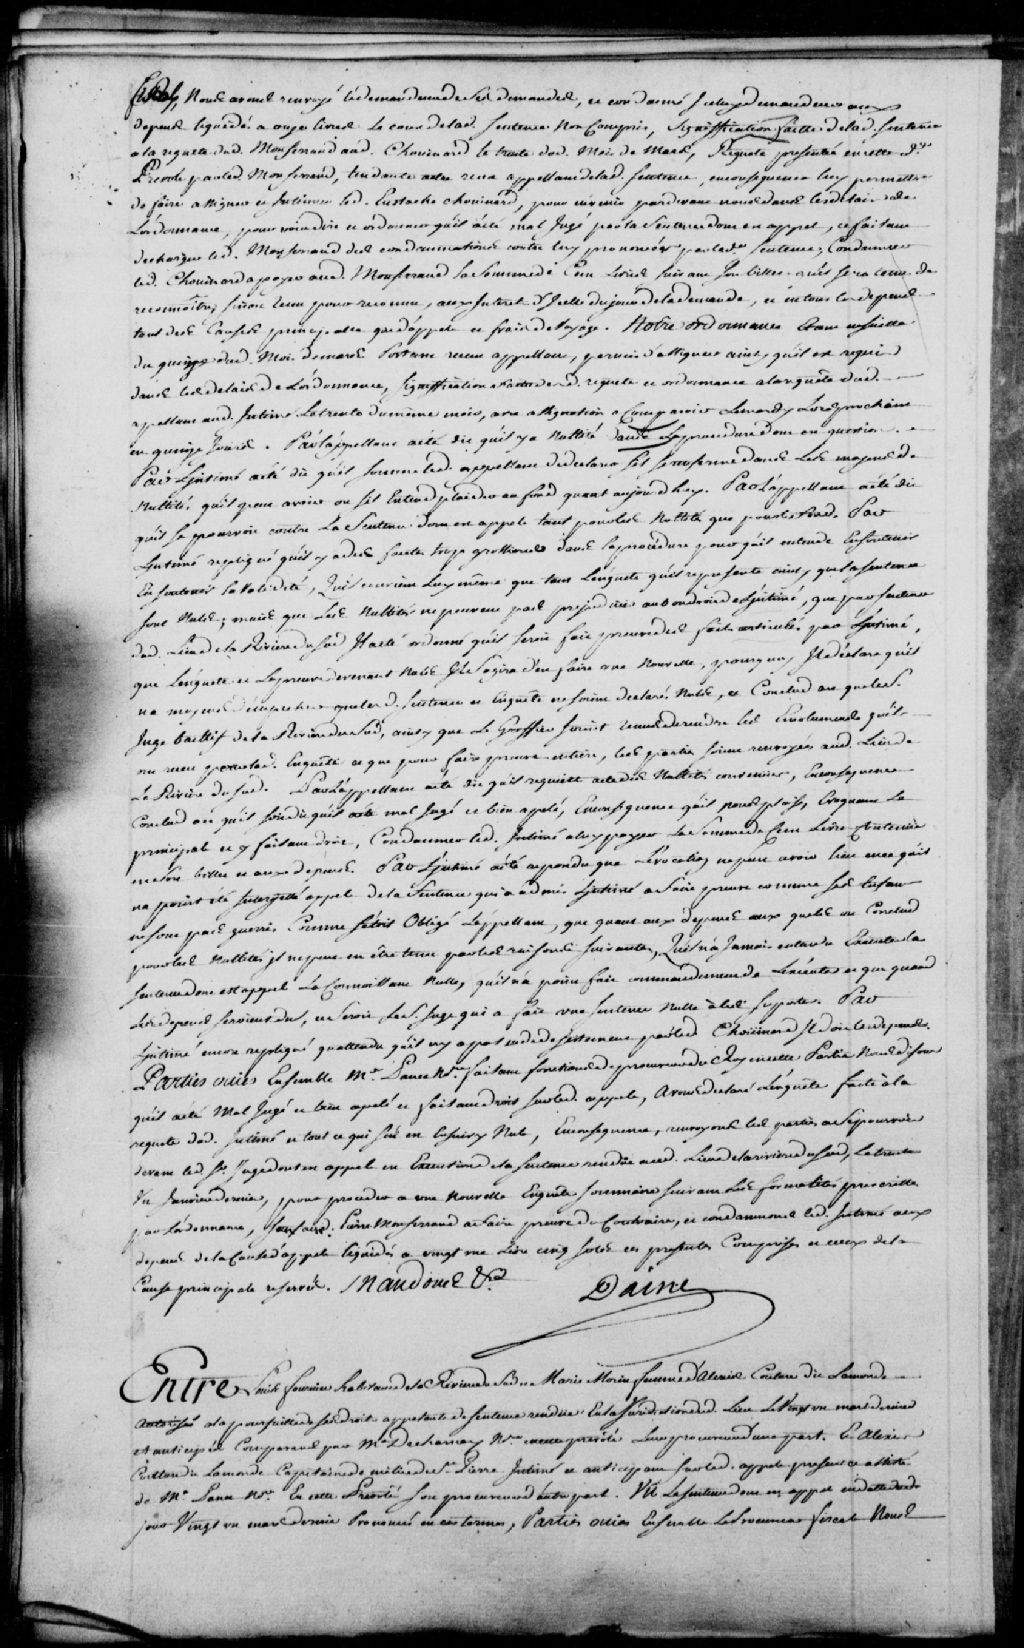 fiscal, Nous avons renvoyé le demandeur de ses demandes, et condamné Iceluy demandeur aux
depens liquidés a onze livres le cout de lad. Sentence Non Compris, Signiffication faitte de lad. Sentence
a la requete dud. Monferrand aud. Chouinard le trente dud. Mois de Mars, Requete presentée en cette
Prevosté par led. Monferrand, tendante a etre recu appellant de lad. Sentence, en consequence luy permettre
de faire assigner et Intimer led. Eustache Chouinard, pour en venir pardevant nous dans les delais de
L'ordonnance, pour voir dire et ordonner qu'il a été mal Jugé par la Sentence dont en appel, ce faisant
decharger led. Monferrand des condamnations contre luy prononcées par lade Sentence; Condamner
led. Chouinard a payer aud. Monferand la Somme de Cent Livres suivant son billet qu'il sera tenu de
reconnoître, sinon tenu pour reconnu, aux Interet d'Icelle du jour de la demande, et en tous les depens
tant des Causes principalle que d'appel et frais de voyage. Notre ordonnance etant ensuitte
du quinze dud. Mois de mars Portant recu appellant, permis d'assigner ainsy qu'il est requis
dans les delais de L'ordonnance, Signiffication faitte de lad. requete et ordonnance a la requête dud.
appellant aud. Intimé Le trente du même mois, avec assignation a Comparoir Le mardy Lors prochain
en quinze Jours. Par L'appellant a été dit qu'il y a Nullité dans La procedure dont en question.
Par L'Intimé a été dit qu'il somme led. appellant de declarer s'il se renferme dans Les moyens de
Nullités qu'il peut avoir ou s'il Entend plaider au fond quant aujourd'huy. Par L'appellant a été dit
qu'il se pourvoir contre La Sentence dont en appel tant pour les Nullité que pour le fond. Par
L'Intimé repliqué qu'il y a des fautes trop grossieres dans la procedure pour qu'il entende la soutenir
En soutenir la Validité, qu'il convient Luy même que tant L'enquete qu'il represente ainsy que la sentence
sont Nulles; mais que Les Nullités ne peuvent pas prejudicier au bon droit de L'Intimé, que par sentence
dud. Lieu de la Riviere du Sud Il a été ordonné qu'il seroit fait preuve des faits articulés par L'Intimé,
que L'enquete et La preuve devenant Nulle Il s'agira d'en faire une Nouvelle, pourquoy Il declare qu'il
na moyens d'empecher que lad. Sentence et Enquête ne soient declarés Nulles, et Conclud a ce que le S.
Juge baillif de la Riviere du Sud, ainsy que Le Greffier soient tenus de rendre Les Emolumens qu'ils
ont recu pour lad. Enquête et que pour faire preuve entiere, les parties soient renvoyées aud. Lieu de
La Riviere du Sud. Par L'appellant a été dit qu'il requiert acte des Nullités convenues, En consequence
Conclud a ce qu'il soit dit qu'il a été mal Jugé et bien appelé, En consequence qu'il nous plaise, Evoquant Le
principal et y faisant droit, Condamner led. Intimé a luy payer La Somme de Cent Livres
en son billet et aux depens. Par L'Intimé a été repondu que L'evocation ne peut avoir lieu
na point été Interjetté appel de la Sentence qui a admis L'Intimé a faire preuve comme ses Enfans
ne sont pas gueris Comme s'étoit Obligé L'appellant, que quant aux depens aux quels on Conclud
pour les Nullités il ne peut en être tenu par les raisons suivantes, Qu'il n'a Jamais entendu Executer la
Sentence dont est appel La Connoissant Nulle, qu'il n'a point fait commandement de L'executer et que quand
Les depens seroient du, ce seroit Le S. Juge qui a fait une Sentence Nulle à les suporter. Par
L'Intimé encore repliqué qu'attendu qu'il n'y a pas par led. Chouinard Il doit les depens.
Parties ouïes Ensemble Me. Panet Nre. faisant fonctions de procureur du Roy en cette Partie Nous disons
qu'il a été Mal Jugé et bien apelé et faisant droit sur led. appel, Avons declaré L'enquête faite à la
requete dud. Intimé et tout ce qui s'en est ensuivy Nul, En consequence, renvoyons les parties a se pourvoir
devant led Sr. Juge dont en appel en Execution de la sentence rendüe aud. Lieu de la riviere du Sud, Le trente
un Janvier dernier, pour proceder a une Nouvelle Enquete Sommaire suivant Les formalités prescrittes
par L'ordonnance, sauf aud. Pierre Monferrand a faire preuve du Contraire, et condamnons led. Intimé aux
depens de la Cause d'appel liquidés a vingt une Livre cinq sols ces presentes Comprises et ceux de la
Cause principale reservés. Mandons &a.
Daine
Entre Louis fournier habitant de la Riviere du Sud et Marie Morin femme d'Alexis Couture dit Lamonde
autorisée a la poursuitte de ses droits appelante de sentence rendüe En la Jurisdiction dud. Lieu Le Vingt un mars dernier
et anticipée Comparant par Me Decharnay Nre. en cette prevôté Leur procureur d'une part. Et Alexis
Couture dit Lamonde Capitaine de milice de St. Pierre Intimé et anticipant sur led. appel present et assisté
de Me. Panet Nre. En cette Prevôté son procureur d'autre part. Vû La sentence dont est appel en datte dud.
jour Vingt un mars dernier Prononcé en ces termes, Parties ouïes Ensemble Le Procureur fiscal Nous